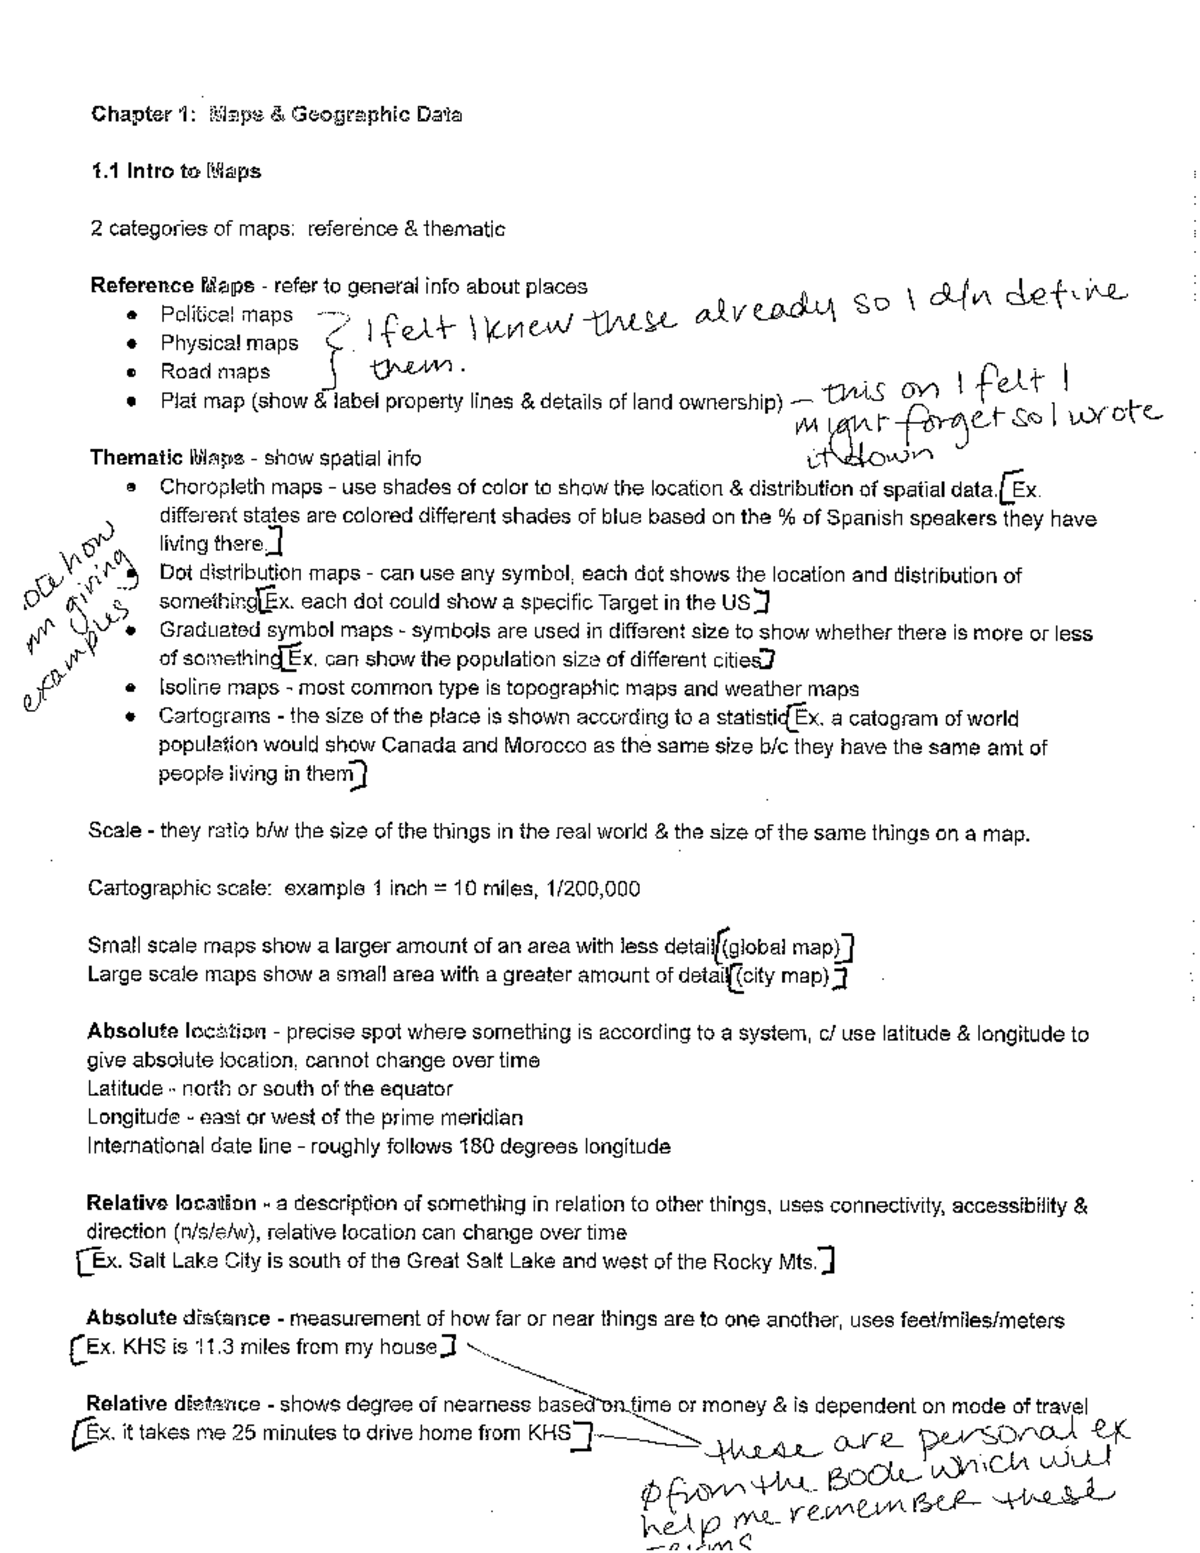 Chapter 1: Maps & Geographic Data
1.1 Intro to Maps
2 categories of maps: reference & thematic
Reference Maps - refer to general info about places
● Political maps
● Physical maps
● Road maps
I felt I knew these already so I d/n define
them.
● Plat map (show & label property lines & details of land ownership) — this on I felt I
might forget so I wrote
it down
Thematic Maps - show spatial info
● Choropleth maps - use shades of color to show the location & distribution of spatial data. [Ex.
different states are colored different shades of blue based on the % of Spanish speakers they have
living there.]
ote how
giving
examples
● Dot distribution maps - can use any symbol, each dot shows the location and distribution of
something [Ex. each dot could show a specific Target in the US]
● Graduated symbol maps - symbols are used in different size to show whether there is more or less
of something [Ex. can show the population size of different cities]
● Isoline maps - most common type is topographic maps and weather maps
● Cartograms - the size of the place is shown according to a statistic [Ex. a catogram of world
population would show Canada and Morocco as the same size b/c they have the same amt of
people living in them]
Scale - they ratio b/w the size of the things in the real world & the size of the same things on a map.
Cartographic scale: example 1 inch = 10 miles, 1/200,000
Small scale maps show a larger amount of an area with less detail [(global map)]
Large scale maps show a small area with a greater amount of detail [(city map)]
Absolute location - precise spot where something is according to a system, c/ use latitude & longitude to
give absolute location, cannot change over time
Latitude - north or south of the equator
Longitude - east or west of the prime meridian
International date line - roughly follows 180 degrees longitude
Relative location - a description of something in relation to other things, uses connectivity, accessibility &
direction (n/s/e/w), relative location can change over time
[Ex. Salt Lake City is south of the Great Salt Lake and west of the Rocky Mts.]
Absolute distance - measurement of how far or near things are to one another, uses feet/miles/meters
[Ex. KHS is 11.3 miles from my house]
Relative distance - shows degree of nearness based on time or money & is dependent on mode of travel
[Ex. it takes me 25 minutes to drive home from KHS]
these are personal ex
φ from the Book which will
help me remember these
terms